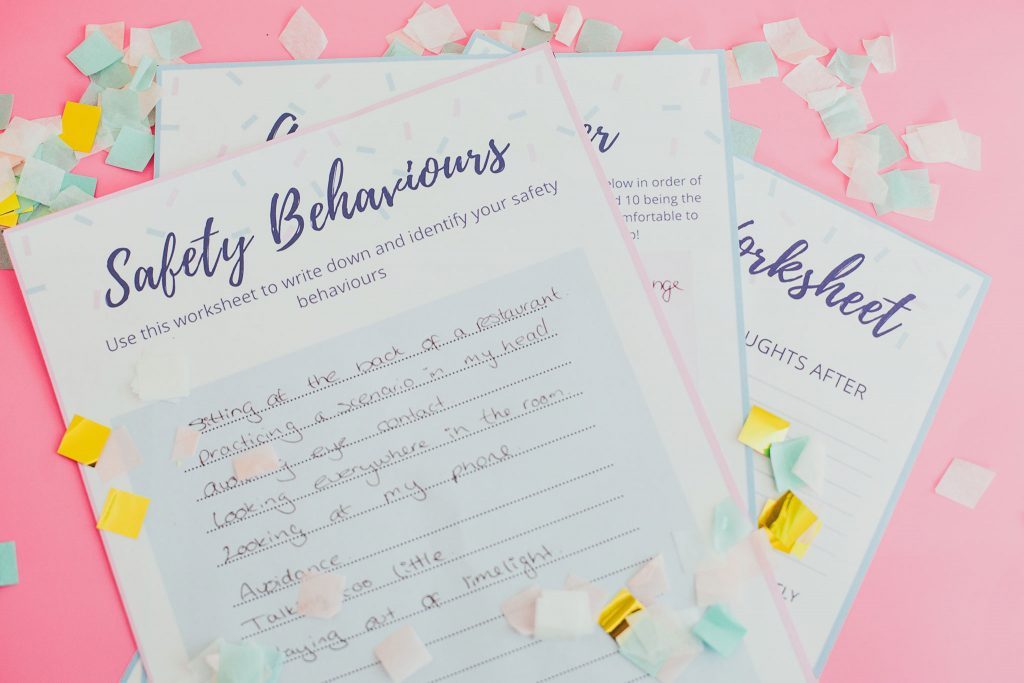 Safety Behaviours
Use this worksheet to write down and identify your safety
behaviours
Sitting at the back of a restaurant.
Practicing a scenario in my head
eye contact
Looking everywhere in the room.
Looking at my phone.
Avoidance.
too little
out of limelight.
er
elow in order of
d 10 being the
mfortable to
o!
nge
orksheet
UGHTS AFTER
LY